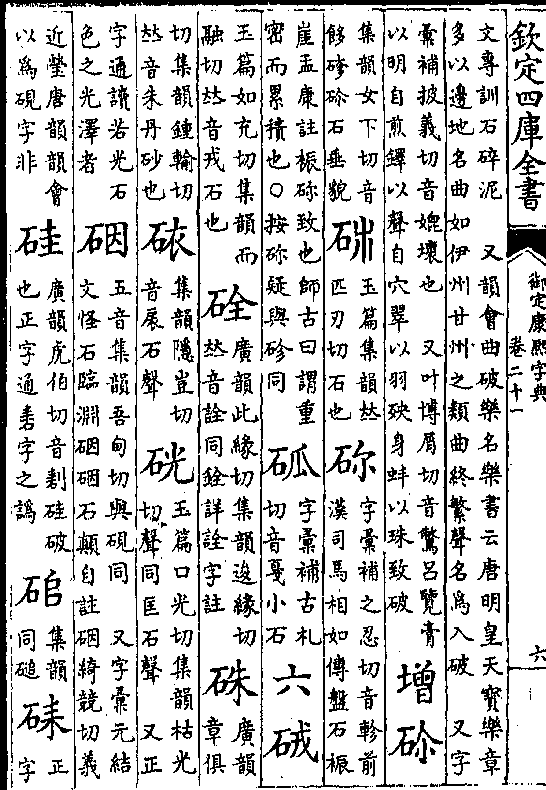 欽定四庫全書
御定康熙字典
卷二十一
六
文專訓石碎泥　又韻會曲破樂名樂書云唐明皇天寶樂章
多以邊地名曲如伊州甘州之類曲終繁聲名爲入破　又字
彙補披義切音媲壞也　又叶博眉切音驚呂覽膏
以明自煎鐸以聲自穴翠以羽殃身蚌以珠致破
增
集韻女下切音
石垂貌
玉篇集韻𠀤
匹刃切石也
字彙補之忍切音軫前
漢司馬相如傳盤石裖
崖孟康註裖致也師古曰謂重
密而累積也○按疑與同
字彙補古札
切音戛小石
六
玉篇如充切集韻而
融切𠀤音戎石也
硂
廣韻此緣切集韻逡緣切
𠀤音詮同銓詳詮字註
硃
廣韻
章俱
切集韻鍾輸切
𠀤音朱丹砂也
集韻隱豈切
音扆石聲
硄
玉篇口光切集韻枯光
切聲同匡石聲　又正
字通讀若光石
色之光澤者
五音集韻吾甸切與硯同　又字彙元結
文怪石臨淵石顛自註綺競切義
近瑩唐韻韻會
以爲硯字非
硅
廣韻虎伯切音剨硅破
也正字通砉字之譌
集韻
同磓
正
字